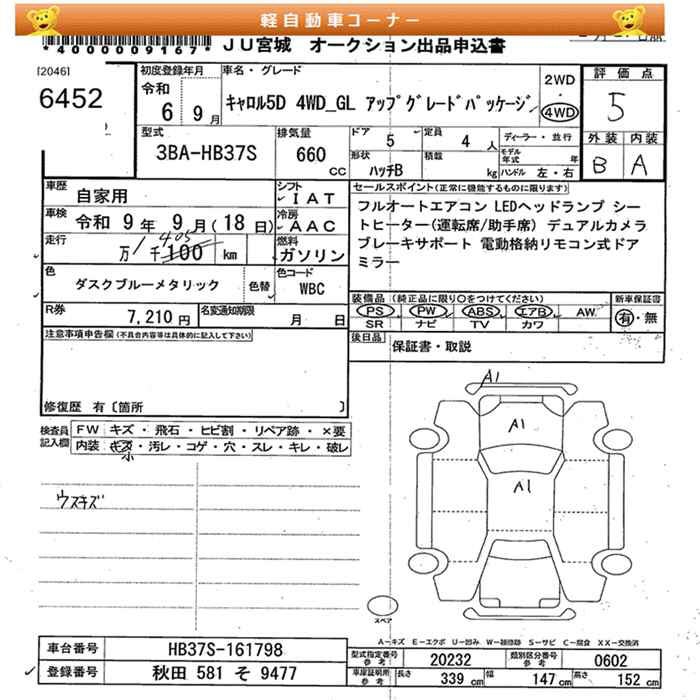 軽自動車コーナー
*4000009167* JU宮城 オークション出品申込書
[2046]
6452
初度登録年月
令和
6 9月
車名・グレード
キャロル5D 4WD_GL アップグレードパッケージ
2WD
・
4WD
評価点
5
外装 内装
B A
型式
3BA-HB37S
排気量
660
CC
ドア
5
定員
4 人
形状
ハッチB
積載
kg
ディーラー・並行
モデル
年式 年
ハンドル 左・右
車歴
自家用
シフト
IAT
車検
令和 9年 9月(18日)
冷房
AAC
走行
万/千100 km
405
燃料
ガソリン
色
ダスクブルーメタリック
色替
色コード
WBC
R券
7,210円
名変通知期限
月 日
セールスポイント(正常に機能するものに限ります)
フルオートエアコン LEDヘッドランプ シー
トヒーター(運転席/助手席) デュアルカメラ
ブレーキサポート 電動格納リモコン式ドア
ミラー
装備品 (純正品に限り○をつけてください)
PS PW ABS エアB AW
SR ナビ TV カワ
新車保証書
有・無
後日品
保証書・取説
注意事項申告欄(不具合内容等は具体的に記入して下さい)
修復歴 有〔箇所 〕
検査員
記入欄
FW キズ・飛石・ヒビ割・リペア跡・×要
内装 キズ・汚レ・コゲ・穴・スレ・キレ・破レ
小
ウスキズ
A1
A1
A1
スペア
A-キズ E-エクボ U-凹み W-補修跡 S-サビ C-腐食 XX-交換済
車台番号 HB37S-161798
登録番号 秋田 581 そ 9477
型式指定番号
参考
20232
類別区分番号
参考
0602
車庫証明用
参考
長さ 339 cm 幅 147 cm 高さ 152 cm